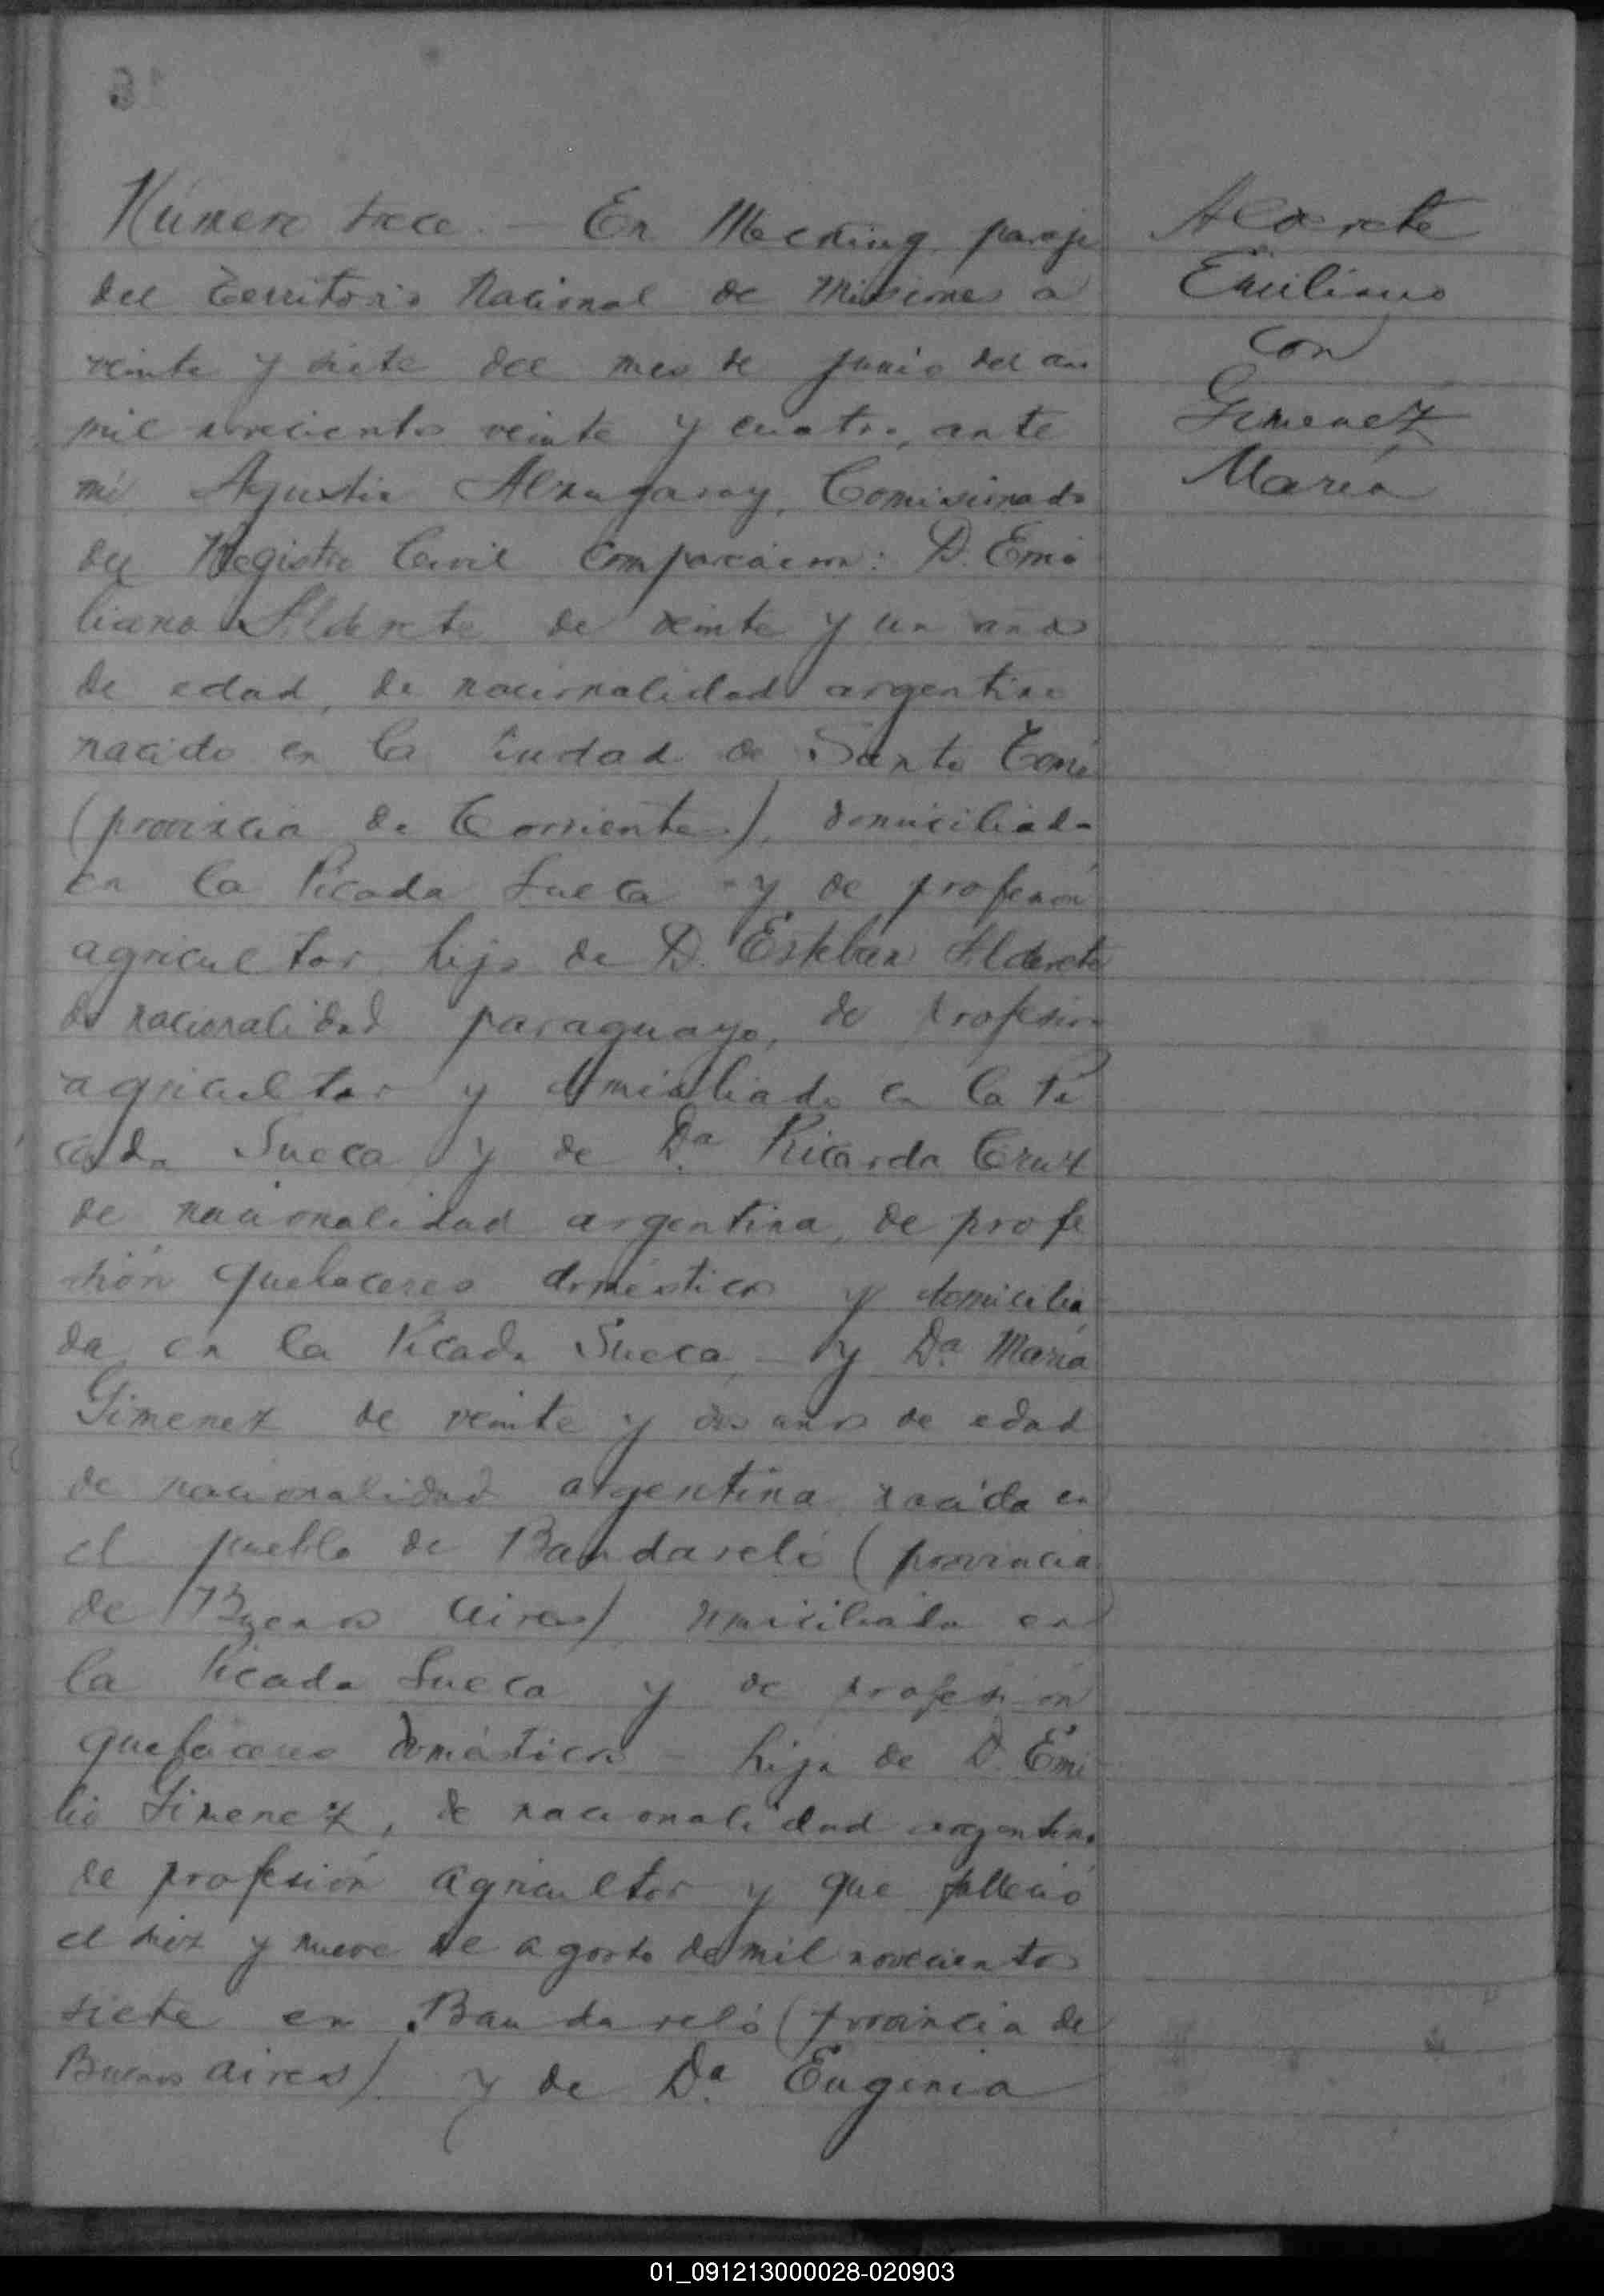 Número trece. — En Mecking paraje
del Territorio Nacional de Misiones a
veinte y siete del mes de junio del año
mil novecientos veinte y cuatro, ante
mí Agustin Alzugaray, Comisionado
del Registro Civil comparecieron: D. Emi
liano Alderete de veinte y un años
de edad, de nacionalidad argentino
nacido en la ciudad de Santo Tomé
(provincia de Corrientes), domiciliado
en la Picada Sueca y de profesión
agricultor hijo de D. Esteban Alderete
de nacionalidad paraguayo, de profesión
agricultor y domiciliado en la Pi
cada Sueca y de Da. Ricarda Cruz
de nacionalidad argentina, de profe
sión quehaceres domésticos y domicilia
da en la Picada Sueca, — y Da. María
Gimenez de veinte y dos años de edad
de nacionalidad argentina nacida en
el pueblo de Bandareló (provincia
de Buenos Aires) domiciliada en
la Picada Sueca y de profesión
quehaceres domésticos — hija de D. Emi
lio Gimenez, de nacionalidad argentino
de profesión agricultor y que falleció
el diez y nueve de agosto de mil novecientos
siete en Bandareló (provincia de
Buenos Aires) y de Da. Eugenia
Alderete
Emiliano
con
Gimenez
María
01_091213000028-020903